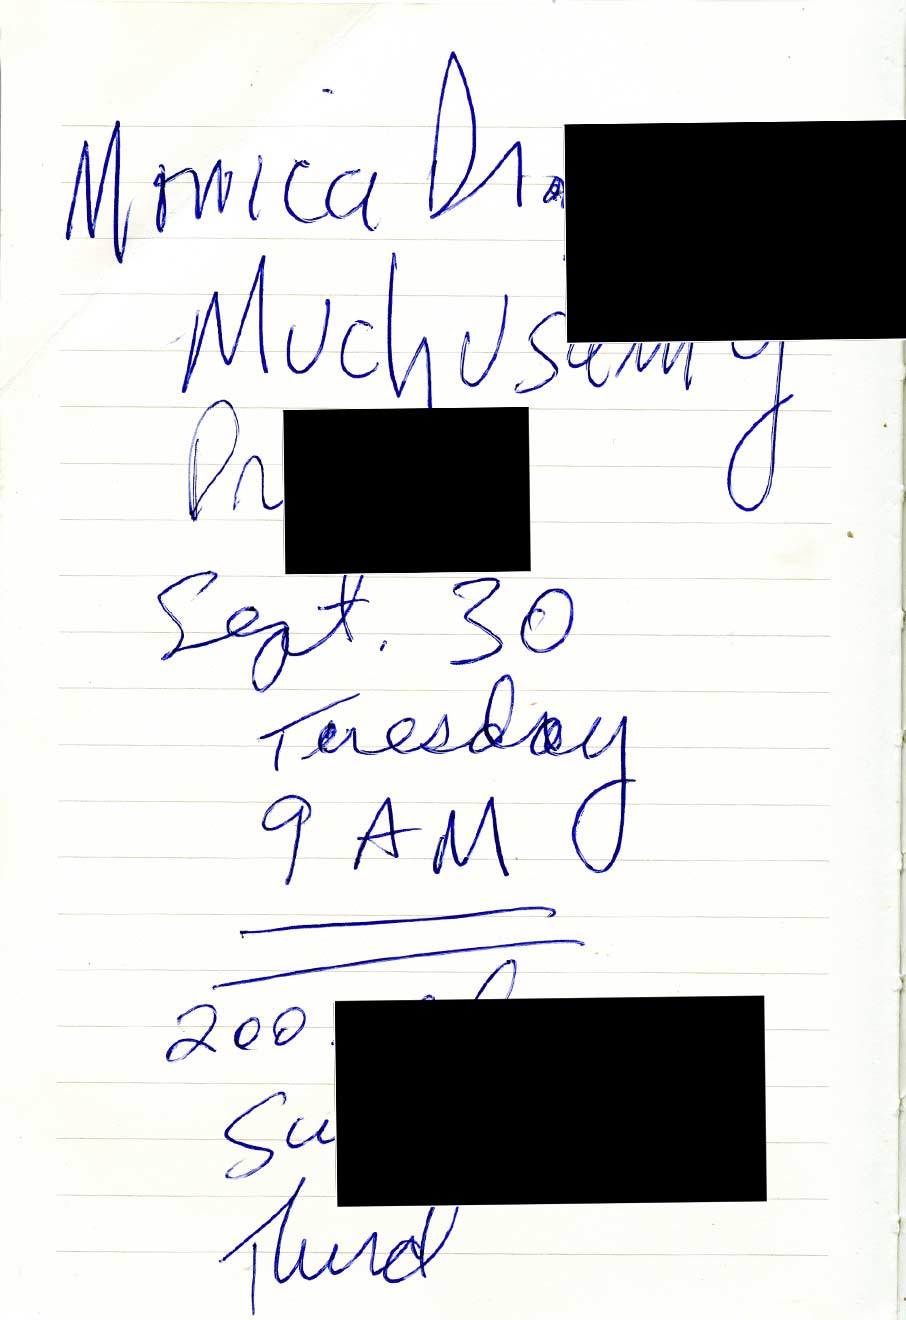 Monica
Muchusamy
Sept. 30
Tuesday
9 AM
200
Third